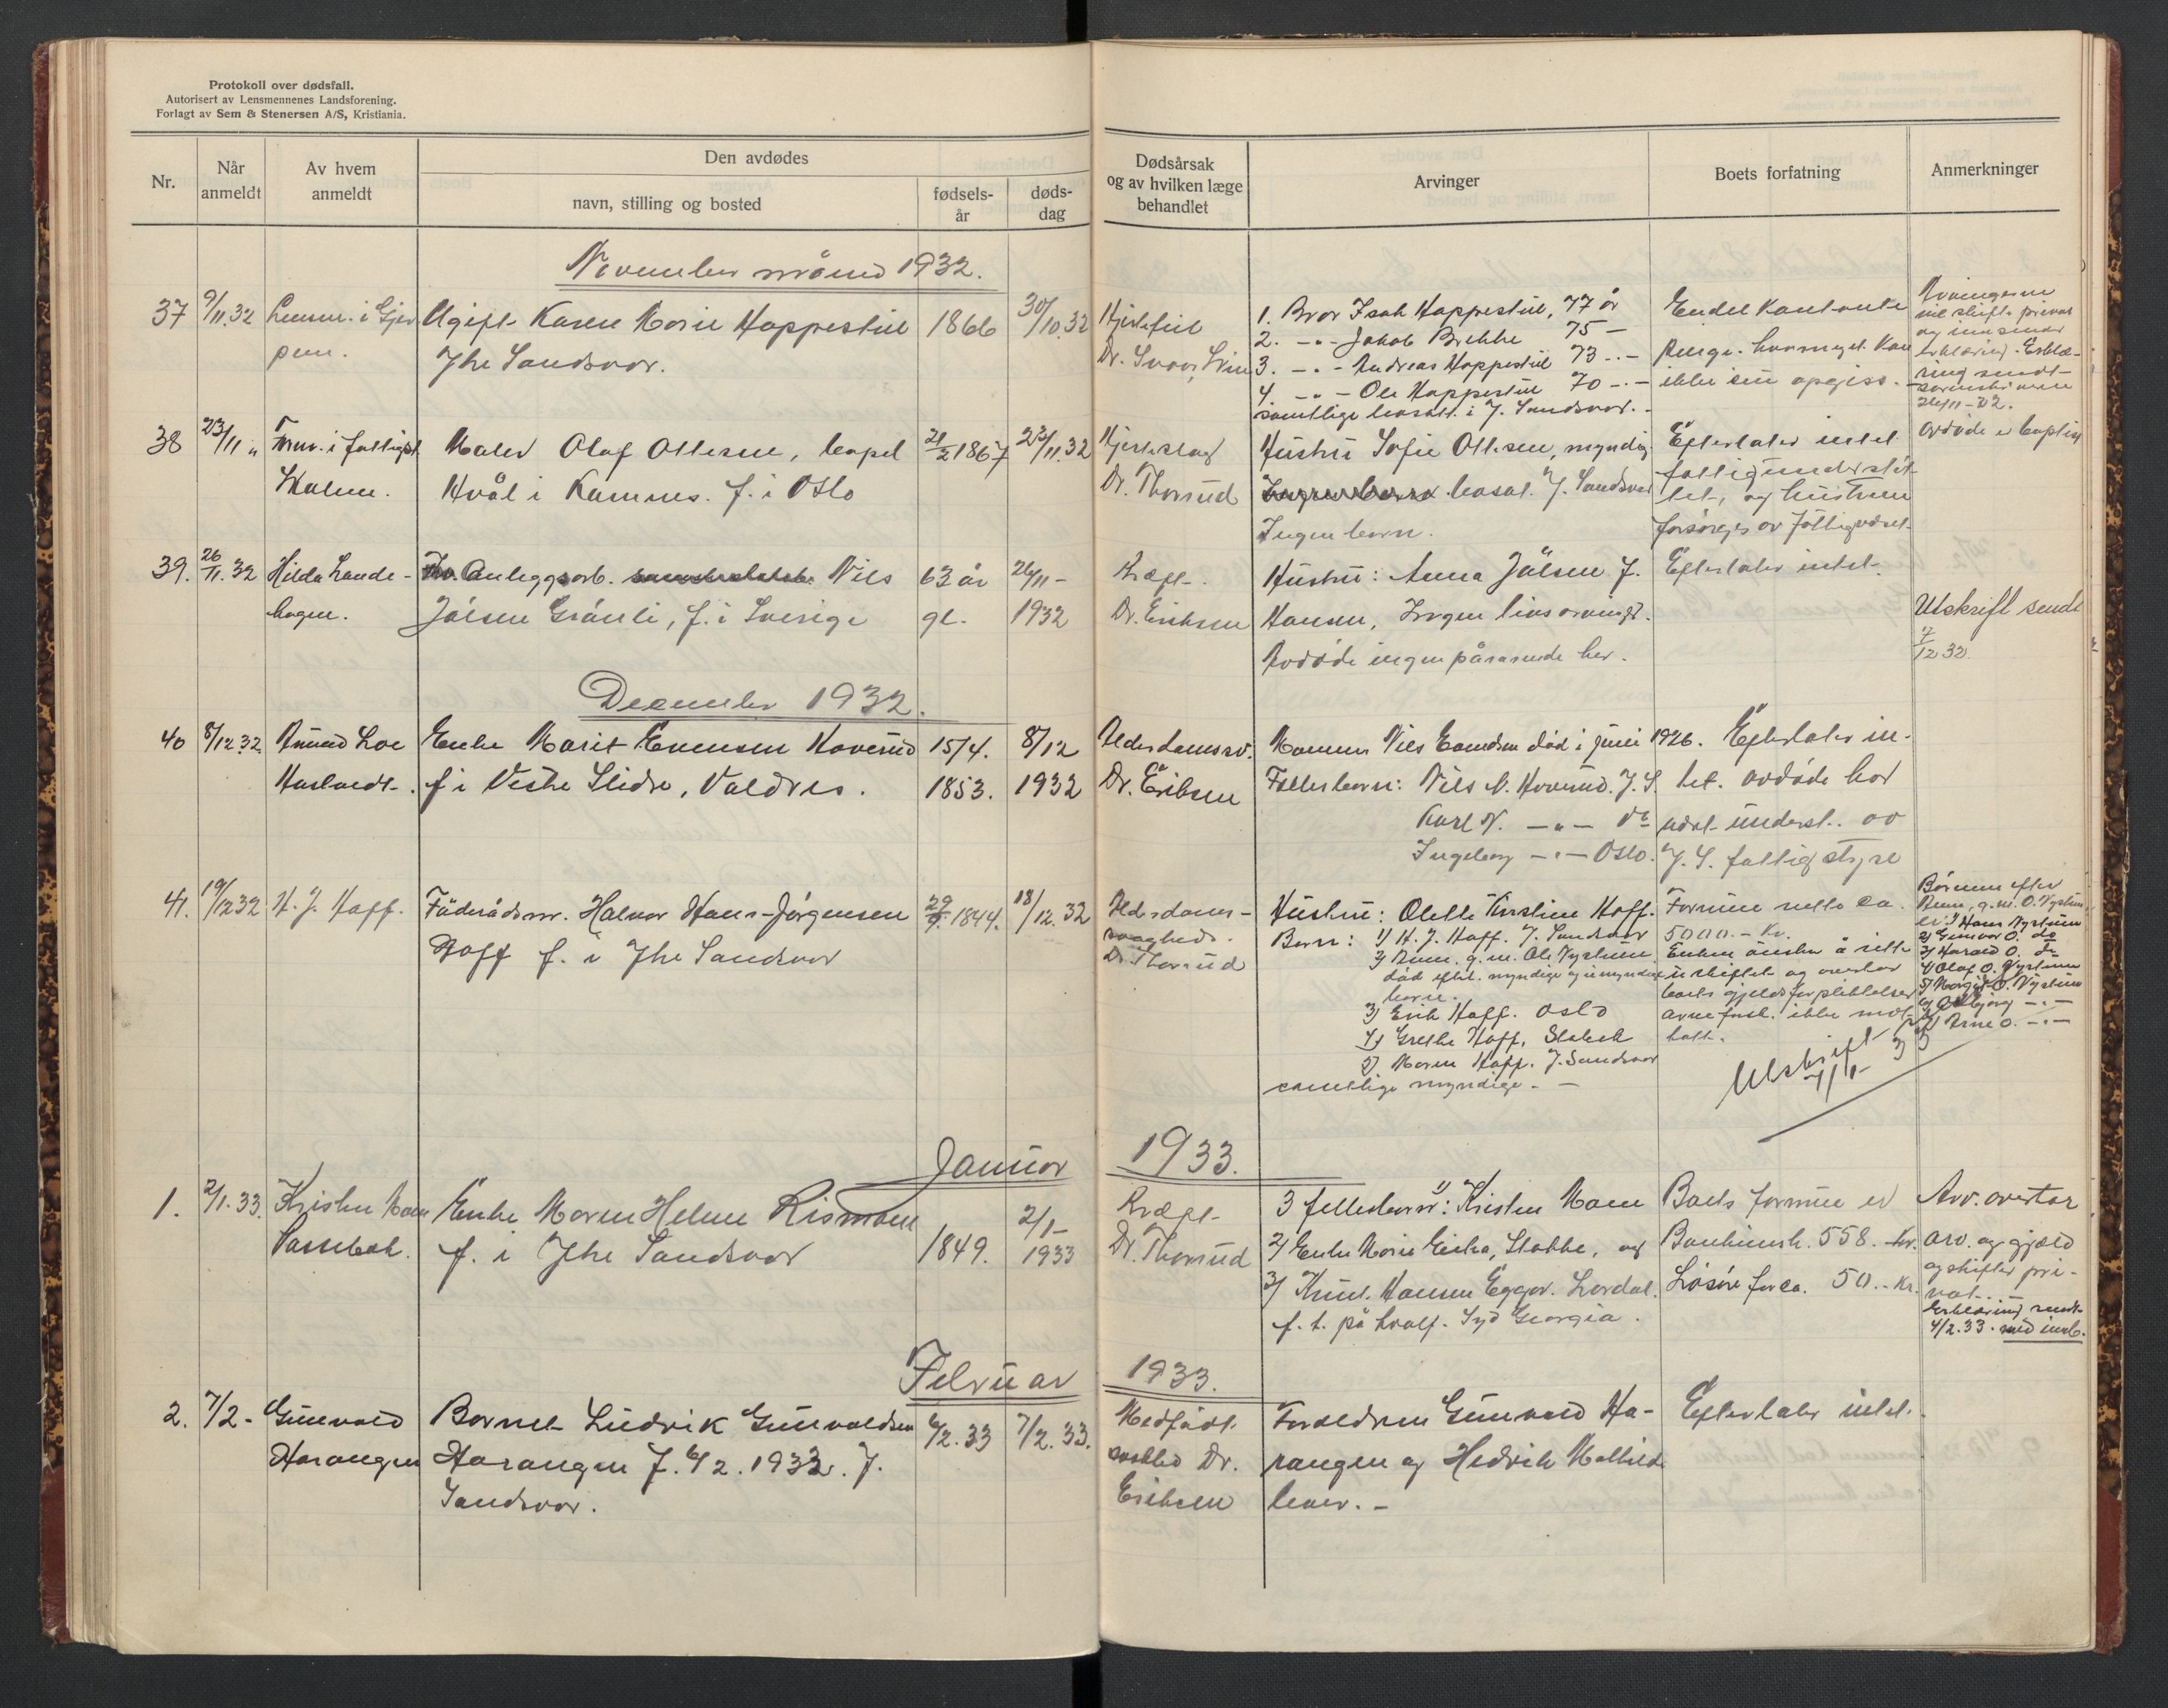 Protokoll over dødsfall.
Autorisert av Lensmennenes Landsforening.
Forlagt av Sem & Stenersen A/S, Kristiania.
Nr.
Når anmeldt
Av hvem anmeldt
Den avdødes
navn, stilling og bosted
fødsels-år
døds-dag
Dødsårsak og av hvilken læge behandlet
Arvinger
Boets forfatning
Anmerkninger
November måned 1932.
37 9/11.32 Lensm. i Gjerpen.
Ugift Karen Marie Hoppestul
Ytre Sandsvær.
1866
30/10.32
Hjertefeil
1. Bror Isak Hoppestul, 77 år
2. -"- Jakob Brekke 75 -
3. -"- Andreas Hoppestul 73 -"-
4. -"- Ole Hoppestul 70 -"-
samtlige bosatt i Y. Sandsvær.
Endel kontante
penge. hvormeget kan
ikke sies opgis. -
Arvingerne
vil skifte privat
og innsender
erklæring. Erklæ-
ring sendt
sorenskriveren
26/11-32.
38 23/11 "
Form. i fattigst.
Maler Olaf Ottesen, Capel
Hvål i Kamnes. f. i Oslo
21/2 1867
23/11.32
Hjerteslag
Dr. Thorrud
Hustru Sofie Ottesen, myndig
bosat. Y. Sandsvær
Ingen barn.
Efterlater intet
fattigunderstøt-
tet, og hustruen
forsørges av fattigvæset.
Avdøde er baptist
39. 26/11.32 Hilda Lande-
hagen.
Anleggsarb. Nils
Jålsen Grånli, f. i Sverige
63 år
gl.
26/11-
1932
Kræft.
Dr. Eriksen
Hustru: Anna Jålsen f.
Hansen, Ingen livsarving.
Avdøde ingen pårørende her.
Efterlater intet.
Utskrift sendt
7/12 32.
December 1932.
40 8/12.32. Amund Loe
Enke Marit Evensen Hoverud
f i Vestre Slidre, Valdres.
15/4.
1853.
8/12
1932
Alderdomssv.
Dr. Eriksen
Mannen Nils Evensen død i juni 1926.
Fellesbarn: Nils N. Hoverud. Y. S.
Karl N. -"- do
Ingeborg -"- Oslo.
Efterlater in-
tet. avdøde har
vært underst. av
Y. S. fattigstyre
41. 19/12 32 H. J. Hoff.
Føderådsm. Halvor Hans-Jørgensen
Hoff f. i Ytre Sandsvær
1844.
18/12.32
Alderdoms-
svaghed.
Dr. Thorrud
Hustru: Olette Kirstine Hoff.
Barn: 1) H. J. Hoff. Y. Sandsvær
2) Anne, g.m. Ole Nystuen
død efterl. myndige og umyndige
barn.
3) Erik Hoff. Oslo
4) Grethe Hoff, Stabek
5) Maren Hoff. Y. Sandsvær
samtlige myndige. -
Formue netto ca.
5000.- Kr.
Enken ønsker å sitte
i uskiftet og overtar
boets gjeldsforpliktelser
arveforsk. ikke mot-
tatt.
Utskrift
Børnene efter
Anne, g.m. O. Nystuen
er: 1) Hans Nystuen
2) Gunvor O. do
3) Harald O. do
4) Olaf O. Nystuen
5) Margit O. Nystuen
-"-
7) Arne O. -"-
Januar 1933.
1. 2/1.33. Kristen Moen
Passebek.
Enke Maren Helene Rismoen
f. i Ytre Sandsvær
1849.
2/1-
1933
Kræft
Dr. Thorrud
3 fellesbarn: 1) Kristen Moen
2) Enke Marie Eicka, Stabbe, og
3) Knut Hansen Eggar. Lardal.
f. t. på hvalf. Syd Georgia.
Boets formue er
Bankinnsk. 558.- Kr.
Løsøre for ca. 50.- Kr.
Arv. overtar
arv. og gjæld
og skifter pri-
vat. -
Erklæring sendt
4/2.33. med innb.
Februar 1933.
2. 7/2- Gunvald
Harangen
Barnet Ludvik Gunvaldsen
Harangen f. 6/2. 1933. Y.
Sandsvær.
6/2.33
7/2.33.
Medfødt
svakhed Dr.
Eriksen
Foreldrene Gunvald Ha-
rangen og Hedvik Mathilde
lever. -
Efterlater intet.